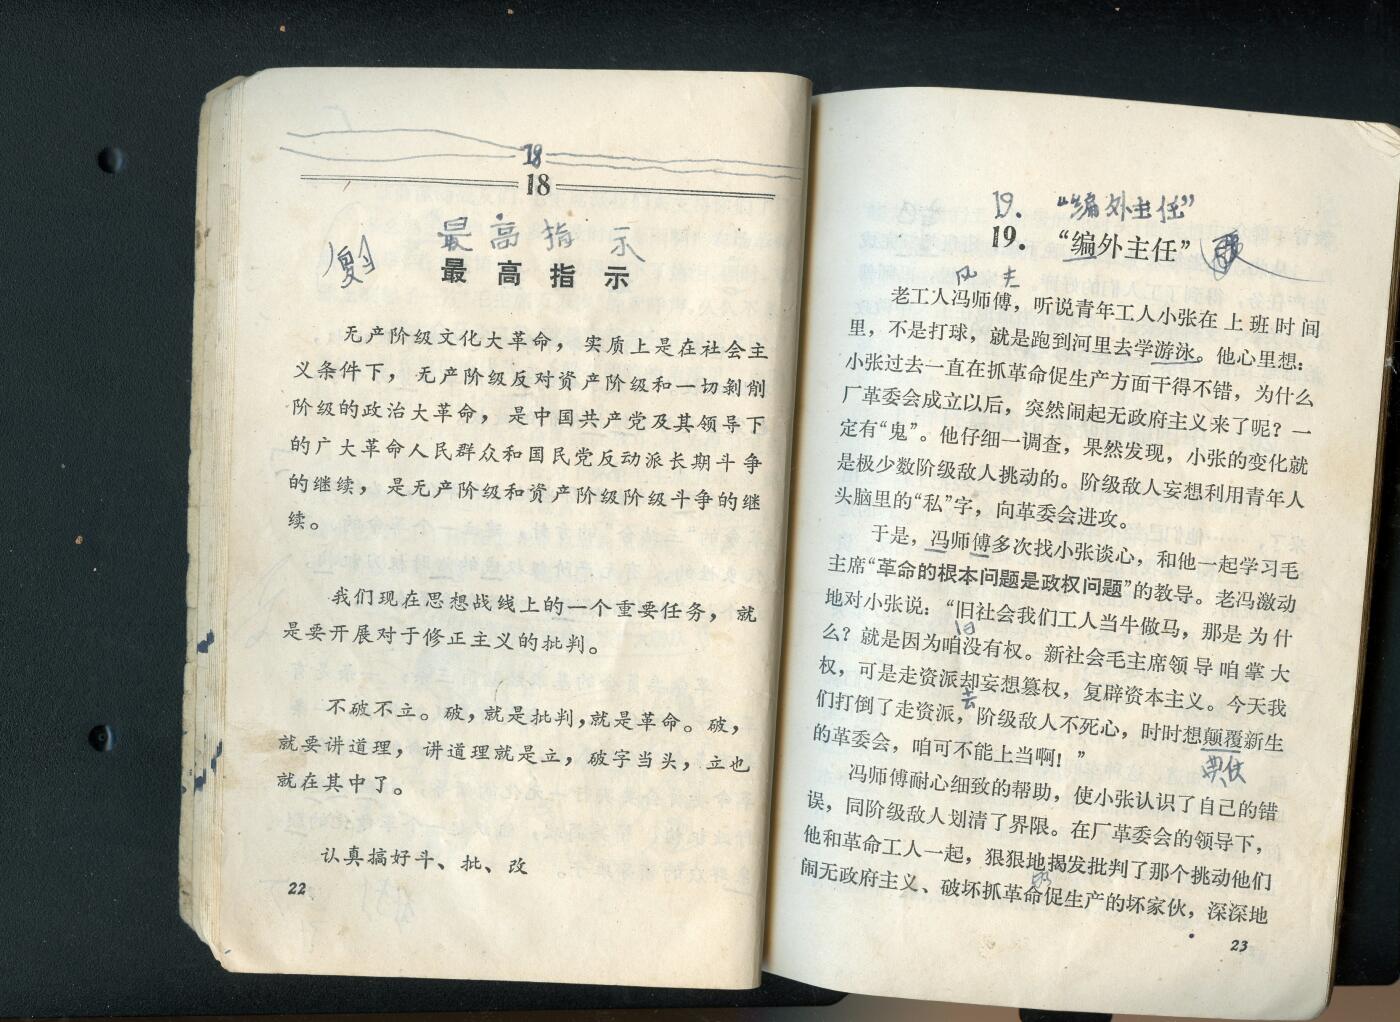 18
18
最高指示
最高指示
无产阶级文化大革命，实质上是在社会主
义条件下，无产阶级反对资产阶级和一切剥削
阶级的政治大革命，是中国共产党及其领导下
的广大革命人民群众和国民党反动派长期斗争
的继续，是无产阶级和资产阶级阶级斗争的继
续。
我们现在思想战线上的一个重要任务，就
是要开展对于修正主义的批判。
不破不立。破，就是批判，就是革命。破，
就要讲道理，讲道理就是立，破字当头，立也
就在其中了。
认真搞好斗、批、改。
22
19. “编外主任”
19. “编外主任”
老工人冯师傅，听说青年工人小张在上班时间
里，不是打球，就是跑到河里去学游泳。他心里想：
小张过去一直在抓革命促生产方面干得不错，为什么
厂革委会成立以后，突然闹起无政府主义来了呢？一
定有“鬼”。他仔细一调查，果然发现，小张的变化就
是极少数阶级敌人挑动的。阶级敌人妄想利用青年人
头脑里的“私”字，向革委会进攻。
于是，冯师傅多次找小张谈心，和他一起学习毛
主席“革命的根本问题是政权问题”的教导。老冯激动
地对小张说：“旧社会我们工人当牛做马，那是为什
旧
么？就是因为咱没有权。新社会毛主席领导咱掌大
权，可是走资派却妄想篡权，复辟资本主义。今天我
去
们打倒了走资派，阶级敌人不死心，时时想颠覆新生
的革委会，咱可不能上当啊！”
冯师傅耐心细致的帮助，使小张认识了自己的错
误，同阶级敌人划清了界限。在厂革委会的领导下，
他和革命工人一起，狠狠地揭发批判了那个挑动他们
闹无政府主义、破坏抓革命促生产的坏家伙，深深地
23